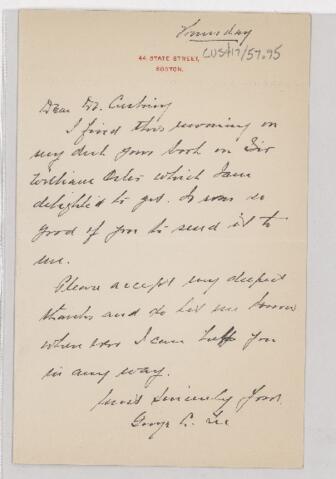 Thursday
CUS417/57.95
44 STATE STREET,
BOSTON.
Dear Dr. Cushing
I find this morning on
my desk your book on Sir
William Osler which I am
delighted to get. It was so
good of you to send it to
me.
Please accept my deepest
thanks and do let me know
when ever I can help you
in any way.
Most Sincerely Yours.
George C. Lee